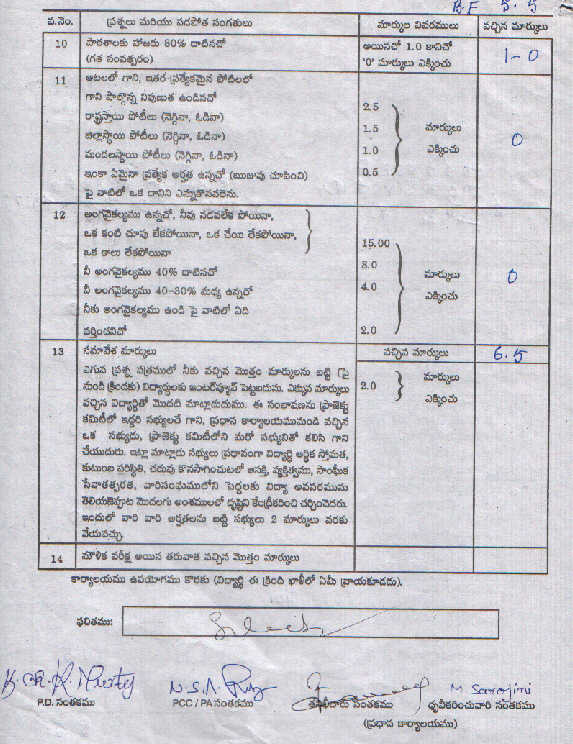 B.F 5.5
వ.నెం. ప్రశ్నలు మరియు పదపోత సంగతులు మార్కుల వివరములు వచ్చిన మార్కులు
10 పాఠశాలకు హాజరు 80% దాటినచో అయినచో 1.0 కానిచో 1-0
(గత సంవత్సరం) '0' మార్కులు ఎక్కించు
11 ఆటలలో గాని, ఇతర ప్రత్యేకమైన పోటీలలో
గాని పాల్గొన్న నిపుణుత ఉండినచో
రాష్ట్రస్థాయి పోటీలు (నెగ్గినా, ఓడినా) 2.5
జిల్లాస్థాయి పోటీలు (నెగ్గినా, ఓడినా) 1.5 మార్కులు 0
మండలస్థాయి పోటీలు (నెగ్గినా, ఓడినా) 1.0 ఎక్కించు
ఇంకా ఏమైనా ప్రత్యేక అర్హత ఉన్నచో (ఋజువు చూపించి) 0.5
పై వాటిలో ఒక దానిని ఎన్నుకొనవలెను.
12 అంగవైకల్యము ఉన్నచో, నీవు నడవలేక పోయినా,
ఒక కంటి చూపు లేకపోయినా, ఒక చేయి లేకపోయినా,
ఒక కాలు లేకపోయినా 15.00
నీ అంగవైకల్యము 40% దాటినచో 8.0 మార్కులు 0
నీ అంగవైకల్యము 40-80% మధ్య ఉన్నచో 4.0 ఎక్కించు
నీకు అంగవైకల్యము ఉండి పై వాటిలో ఏది
వర్తించనిచో 2.0
13 సమావేశ మార్కులు వచ్చిన మార్కులు 6.5
ఎగువ ప్రశ్న పత్రములో నీకు వచ్చిన మొత్తం మార్కులను బట్టి (పై 2.0 మార్కులు
నుండి క్రిందకు) విద్యార్థులకు ఇంటర్‌వ్యూస్ పెట్టబడును. ఎక్కువ మార్కులు ఎక్కించు
వచ్చిన విద్యార్థితో మొదట మాట్లాడుదుము. ఈ సంభాషణను ప్రాజెక్టు
కమిటీలో ఇద్దరి సభ్యులచే గాని, ప్రధాన కార్యాలయమునుండి వచ్చిన
ఒక సభ్యుడు, ప్రాజెక్టు కమిటీలోని మరో సభ్యునితో కలిసి గాని
చేయుదురు. ఇట్లా మాట్లాడు సభ్యులు ప్రధానంగా విద్యార్థి ఆర్థిక స్తోమత,
కుటుంబ పరిస్థితి, చదువు కొనసాగించుటలో ఆసక్తి, వ్యక్తిత్వము, సాంఘీక
సేవాతత్పరత, వారిసంఘములోని పెద్దలకు విద్యా అవసరమును
తెలియజెప్పుట మొదలగు అంశములలో దృష్టిని కేంద్రీకరించి చర్చించెదరు.
ఇందులో వారి వారి అర్హతలను బట్టి సభ్యులు 2 మార్కులు వరకు
వేయవచ్చు.
14 మౌళిక పరీక్ష అయిన తరువాత వచ్చిన మొత్తం మార్కులు
కార్యాలయము ఉపయోగము కొరకు (విద్యార్థి ఈ క్రింది ఖాళీలో ఏమీ వ్రాయకూడదు).
ఫలితము: Select
M Sarojini
P.D. సంతకము PCC / PA సంతకము సంతకము ధృవీకరించువారి సంతకము
(ప్రధాన కార్యాలయము)